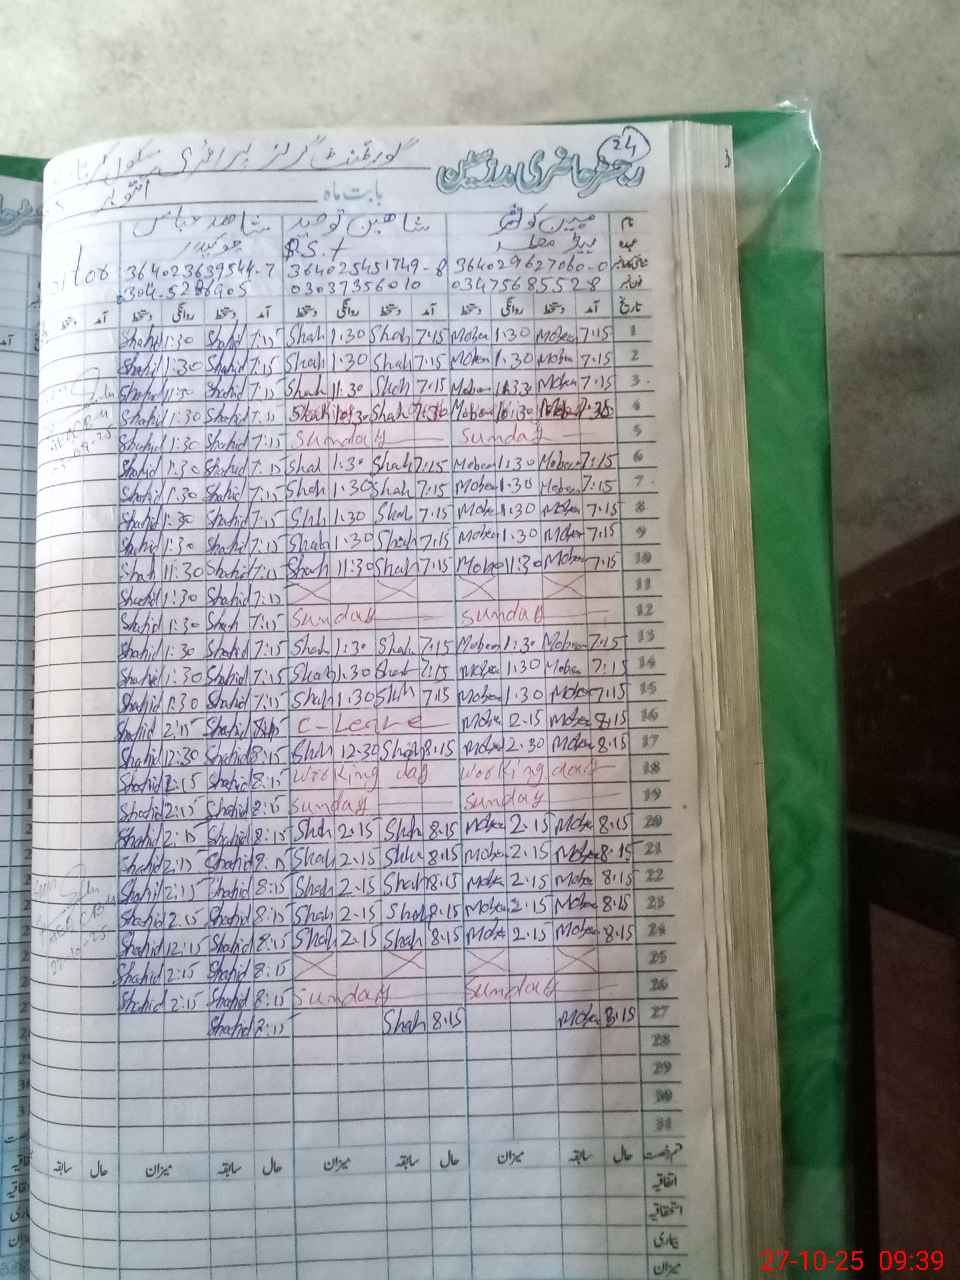 24
رجسٹر حاضری مدرسین
گورنمنٹ گرلز پرائمری سکول
بابت ماہ اکتوبر
نام مبین کوثر شاہین توحید شاہد عباس
عہدہ P.S.T چوکیدار
364029627060-0 364025451749-8 364023639544-7
03475685528 03037356010 0304-5286905
تاریخ آمد دستخط روانگی دستخط آمد دستخط روانگی دستخط آمد دستخط روانگی دستخط آمد دستخط
Shahid 1:30 Shahid 7:15 Shah 1:30 Shah 7:15 Moben 1:30 Moben 7:15 1
Shahid 1:30 Shahid 7:15 Shah 1:30 Shah 7:15 Moben 1:30 Moben 7:15 2
Shahid 11:30 Shahid 7:15 Shah 11:30 Shah 7:15 Moben 11:30 Moben 7:15 3
Shahid 1:30 Shahid 7:15 Shah Shah Moben Moben 4
Shahid 1:30 Shahid 7:15 Sunday Sunday 5
Shahid 1:30 Shahid 7:15 Shah 1:30 Shah 7:15 Moben 1:30 Moben 7:15 6
Shahid 1:30 Shahid 7:15 Shah 1:30 Shah 7:15 Moben 1:30 Moben 7:15 7
Shahid 1:30 Shahid 7:15 Shah 1:30 Shah 7:15 Moben 1:30 Moben 7:15 8
Shahid 1:30 Shahid 7:15 Shah 1:30 Shah 7:15 Moben 1:30 Moben 7:15 9
Shah 11:30 Shahid 7:15 Shah 11:30 Shah 7:15 Moben 11:30 Moben 7:15 10
Shahid 1:30 Shahid 7:15 11
Shahid 1:30 Shah 7:15 Sunday Sunday 12
Shahid 1:30 Shahid 7:15 Shah 1:30 Shah 7:15 Moben 1:30 Moben 7:15 13
Shahid 1:30 Shahid 7:15 Shah 1:30 Shah 7:15 Moben 1:30 Moben 7:15 14
Shahid 1:30 Shahid 7:15 Shah 1:30 Shah 7:15 Moben 1:30 Moben 7:15 15
Shahid 2:15 Shahid C-Leave Moben 2.15 Moben 8:15 16
Shahid 12:30 Shahid 8:15 Shah 12.30 Shah 8.15 Moben 2.30 Moben 8.15 17
Shahid 2:15 Shahid 8:15 Working day Working day 18
Shahid 2:15 Shahid 8:15 Sunday Sunday 19
Shahid 2:15 Shahid 8:15 Shah 2.15 Shah 8.15 Moben 2.15 Moben 8.15 20
Shahid 2:15 Shahid 8:15 Shah 2.15 Shah 8.15 Moben 2.15 Moben 8.15 21
Shahid 2:15 Shahid 8:15 Shah 2.15 Shah 8.15 Moben 2.15 Moben 8.15 22
Shahid 2:15 Shahid 8:15 Shah 2.15 Shah 8.15 Moben 2.15 Moben 8.15 23
Shahid 12:15 Shahid 8:15 Shah 2.15 Shah 8.15 Moben 2.15 Moben 8.15 24
Shahid 2:15 Shahid 8:15 25
Shahid 2:15 Shahid 8:15 Sunday Sunday 26
Shahid 2:15 Shah 8.15 Moben 8.15 27
28
29
30
31
قسم رخصت حال سابقہ میزان حال سابقہ میزان حال سابقہ میزان حال سابقہ
اتفاقیہ
استحقاقیہ
بیماری
میزان
27-10-25 09:39